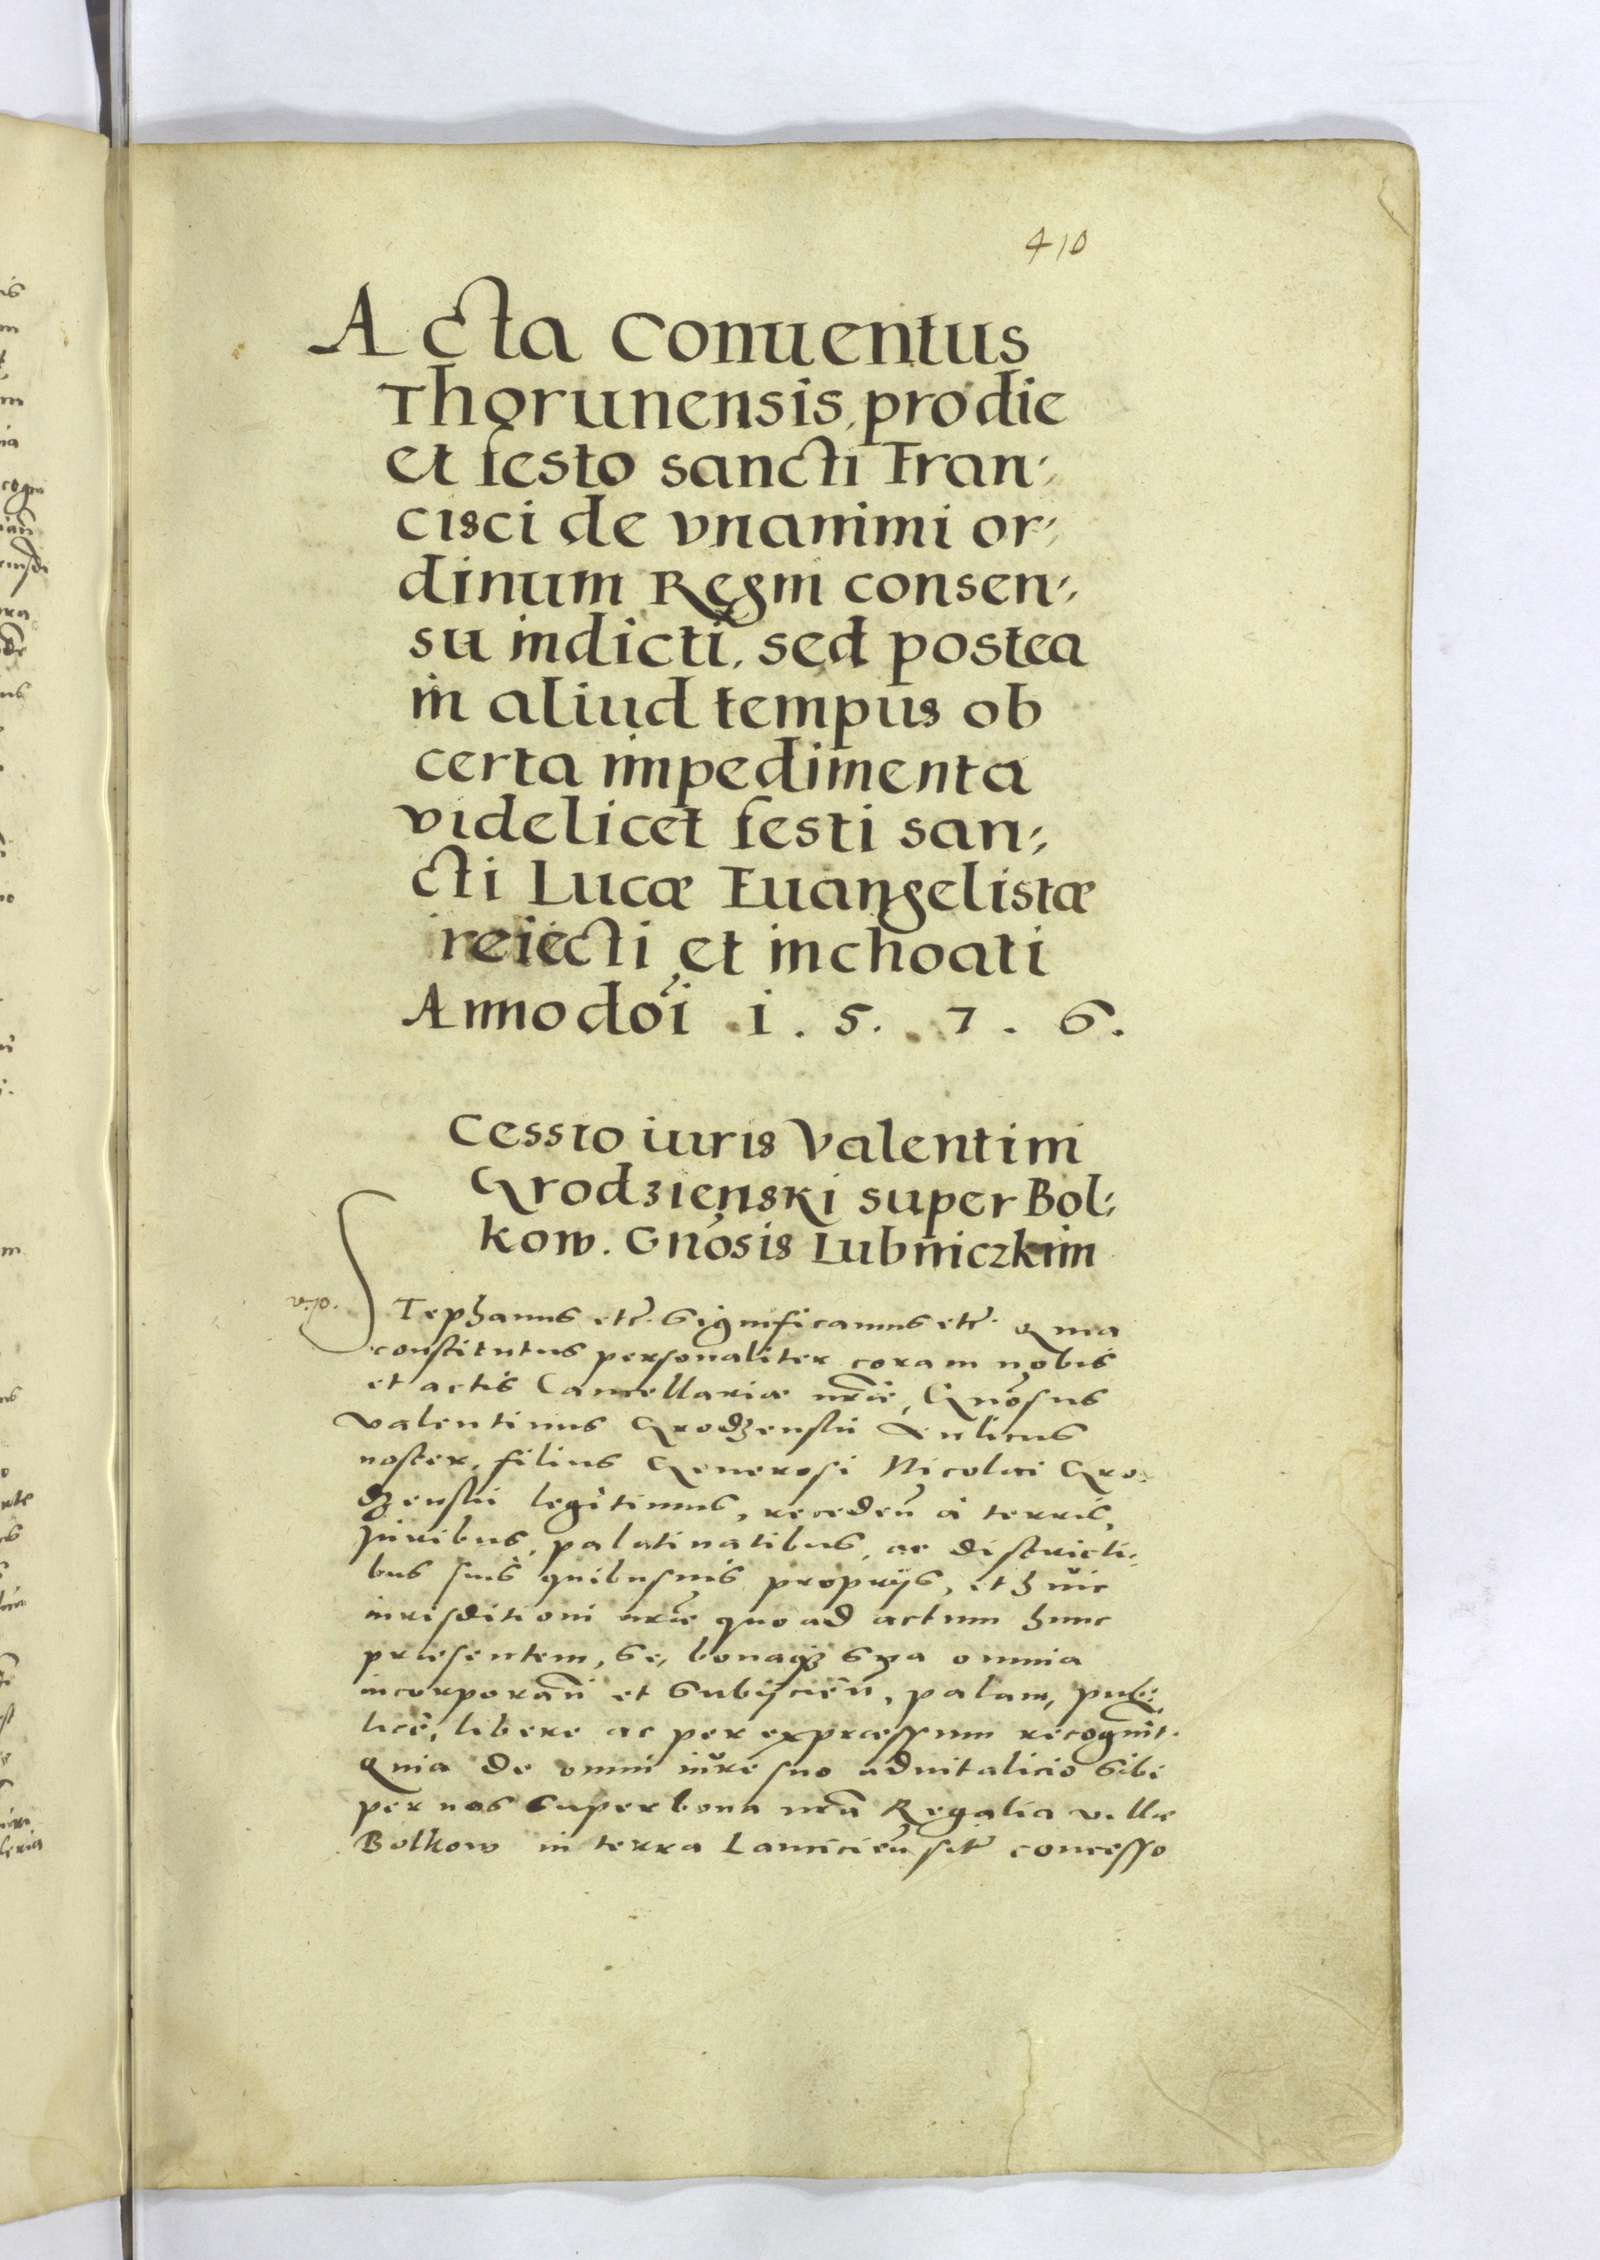 410
Acta Conuentus
Thorunensis, pro die
et festo sancti Fran⸗
cisci de vnanimi or⸗
dinum Regni consen⸗
su indicti, sed postea
in aliud tempus ob
certa impedimenta
videlicet festi san⸗
cti Lucæ Euangelistæ
reiecti, et inchoati
Anno doi 1. 5. 7. 6.
Cessio iuris Valentini
Grodzienski super Bol⸗
kow. Gnosis Lubniczkim
STephanus etc. Significamus etc. Quia
constitutus personaliter coram nobis
et actis Cancellariæ nræ, Gnosus
Valentinus Grodzenski Aulicus
noster, filius Generosi Nicolai Gro⸗
dzenski legitimus, recedeń à terris,
Juribus, palatinatibus, ac districti⸗
bus suis quibusuis proprijs, et huic
iurisditioni nræ quo ad actum hunc
præsentem, se, bonaq; sua omnia
incorporań et subijcień, palam, pub⸗
licè, libere ac per expræssum recognit.
Quia de omni iure suo aduitalicio sibi
per nos super bona nra Regalia villæ
Bolkow in terra Lanicień sit concesso